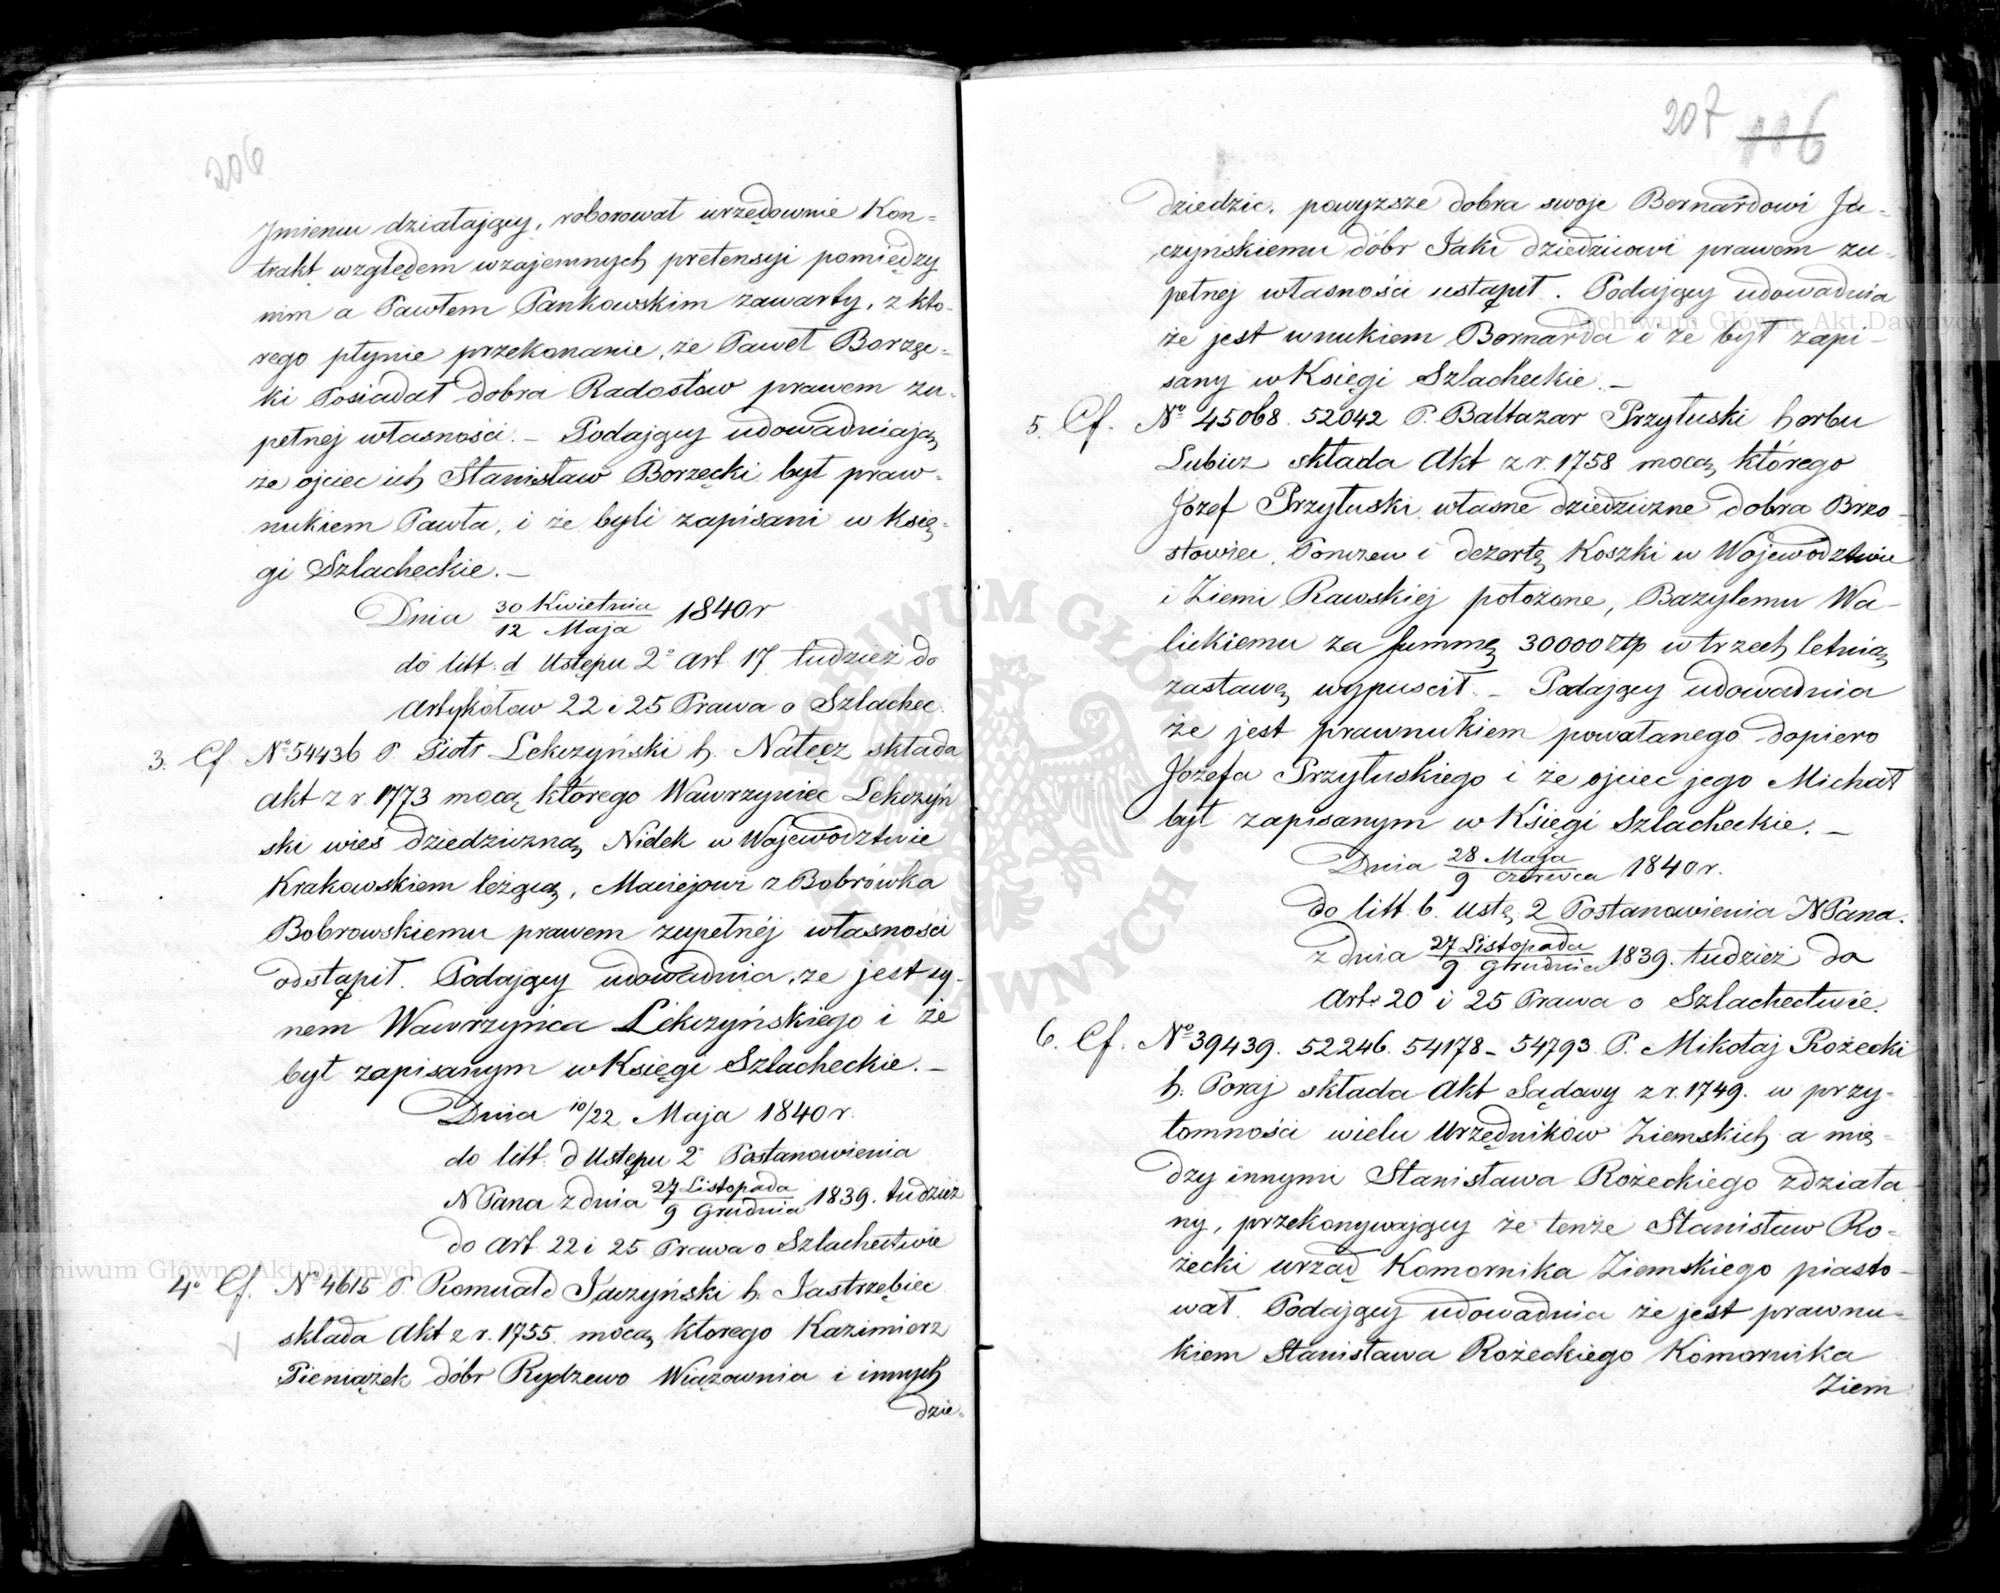 206
Jmieniu działający, roborował urzędownie Kon=
trakt względem wzajemnych pretensyi pomiędzy
nim a Pawłem Pankowskim zawarty, z któ=
rego płynie przekonanie, że Paweł Borzęc=
ki Posiadał dobra Radosław prawem zu=
pełnej własności. – Podający udowadniają,
że ojciec ich Stanisław Borzęcki był praw=
nukiem Pawła, i że byli zapisani w Księ=
gi Szlacheckie. –
Dnia 30 Kwietnia / 12 Maja 1840 r
do litt. d Ustępu 2º Art. 17 tudzież do
Artykółów 22 i 25 Prawa o Szlachec.
3. Cf. Nº 54436 P. Piotr Lekczyński h. Nałęcz składa
Akt z r. 1773 mocą którego Wawrzyniec Lekczyń
ski wieś dziedziczną Nidek w Województwie
Krakowskiem leżącą, Maciejowi z Bobrówka
Bobrowskiemu prawem zupełnéj własności
odstąpił. Podający udowadnia, że jest sy=
nem Wawrzyńca Lekczyńskiego i że
był zapisanym w Księgi Szlacheckie. –
Dnia 10/22 Maja 1840 r.
do litt. d Ustępu 2º Postanowienia
N Pana z dnia 27 Listopada / 9 Grudnia 1839. tudzież
do Art. 22 i 25 Prawa o Szlachectwie
4º Cf. Nº 4615 P. Romuald Jaczyński h. Jastrzębiec
składa Akt z r. 1755. mocą którego Kazimierz
Pieniążek dóbr Rydzewo Wiązownia i innych
dzie=
207 116
dziedzic, powyższe dobra swoje Bernardowi Ja=
czyńskiemu dóbr Jaki dziedzicowi prawem zu=
pełnej własności ustąpił. Podający udowadnia
że jest wnukiem Bernarda i że był zapi=
sany w Księgi Szlacheckie. –
5. Cf. Nº 45068. 52042 P. Baltazar Przyłuski herbu
Lubicz składa Akt z r. 1758 mocą którego
Józef Przyłuski własne dziedziczne dobra Brzo=
stowiec, Ponczew i dezertę Koszki w Województwie
i Ziemi Rawskiej położone, Bazylemu Wa=
lickiemu za summę 30000 Złp w trzech letnią
zastawę wypuścił. – Podający udowadnia
że jest prawnukiem powołanego dopiero
Józefa Przyłuskiego i że ojciec jego Michał
był zapisanym w Księgi Szlacheckie. –
Dnia 28 Maja / 9 Czerwca 1840 r.
do litt. b. Ustę. 2 Postanowienia N Pana.
z dnia 27 Listopada / 9 Grudnia 1839. tudzież do
Art. 20 i 25 Prawa o Szlachectwie.
6. Cf. Nº 39439. 52246. 54178 – 54793. P. Mikołaj Rożecki
h. Poraj składa Akt Sądowy z r. 1749. w przy=
tomności wielu Urzędników Ziemskich a mię=
dzy innymi Stanisława Rożeckiego zdziała
ny, przekonywający że tenże Stanisław Ro=
żecki urząd Komornika Ziemskiego piasto=
wał. Podający udowadnia że jest prawnu=
kiem Stanisława Rożeckiego Komornika
Ziem
Archiwum Główne Akt Dawnych
Archiwum Główne Akt Dawnych
ARCHIWUM GŁÓWNE AKT DAWNYCH